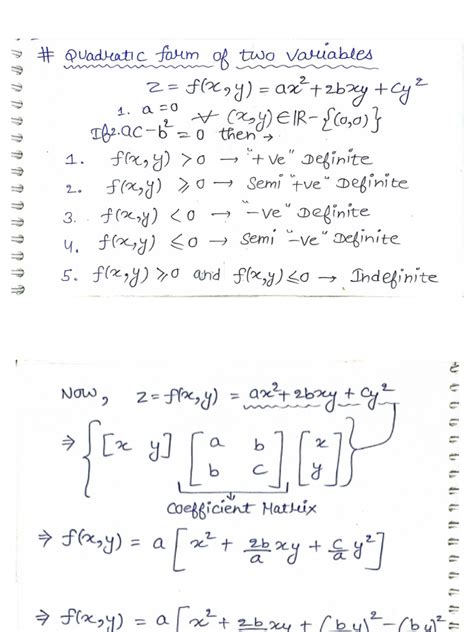 # Quadratic form of two variables
z = f(x,y) = ax² + 2bxy + cy²
1. a = 0 ∀ (x,y) ∈ IR - {(0,0)}
If 2. ac - b² = 0 then →
1. f(x,y) > 0 → "+ve" Definite
2. f(x,y) ⩾ 0 → Semi "+ve" Definite
3. f(x,y) < 0 → "-ve" Definite
4. f(x,y) ⩽ 0 → Semi "-ve" Definite
5. f(x,y) ⩾ 0 and f(x,y) ⩽ 0 → Indefinite
Now, z = f(x,y) = ax² + 2bxy + cy²
⇒ { [x y] [a b; b c] [x; y] }
Coefficient Matrix
⇒ f(x,y) = a [x² + 2b/a xy + c/a y²]
⇒ f(x,y) = a [x² + 2b xy + (b y)² - (b y)²